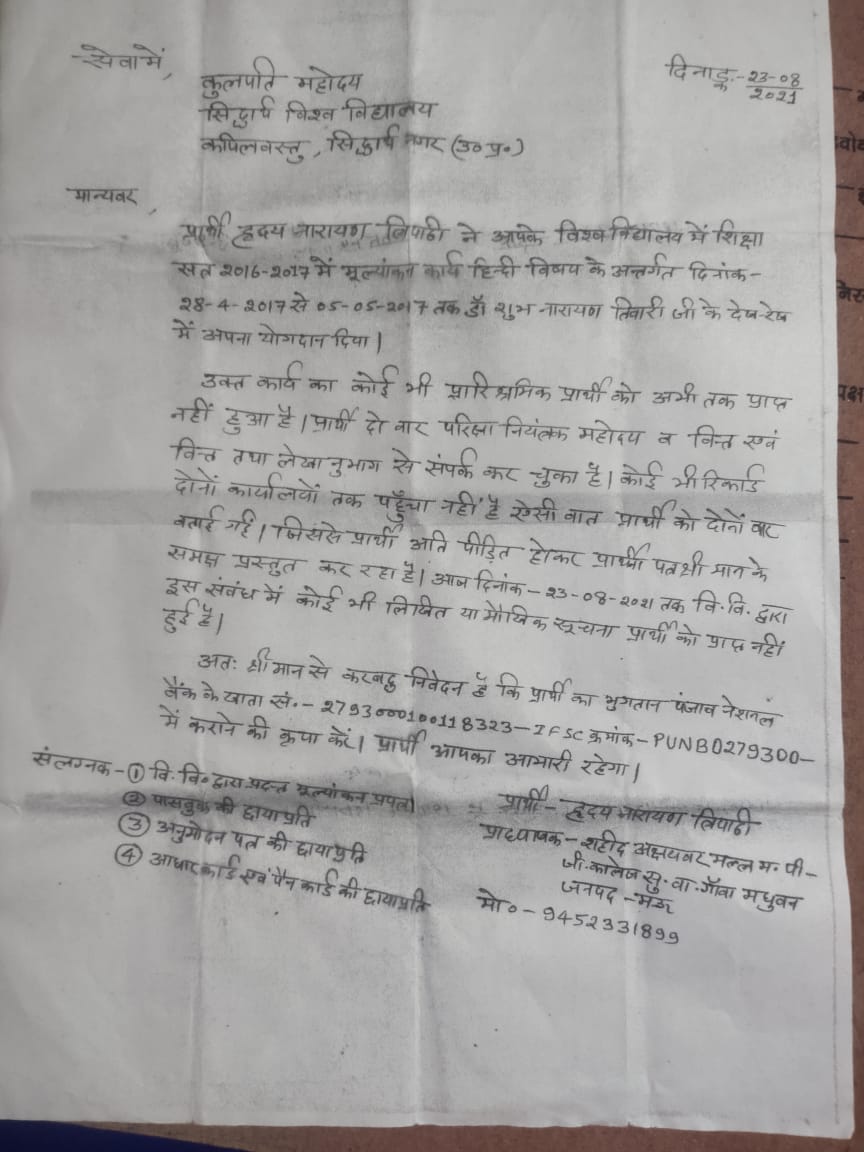 सेवा में,
दिनाङ्क-23-08
2021
कुलपति महोदय
सिद्धार्थ विश्व विद्यालय
कपिलवस्तु, सिद्धार्थ नगर (उ०प्र०)
मान्यवर,
प्रार्थी हृदय नारायण त्रिपाठी ने आपके विश्वविद्यालय में शिक्षा
सत्र 2016-2017 में मूल्यांकन कार्य हिन्दी विषय के अन्तर्गत दिनांक-
28-4-2017 से 05-05-2017 तक डॉ शुभ नारायण तिवारी जी के देख-रेख
में अपना योगदान दिया।
उक्त कार्य का कोई भी पारिश्रमिक प्रार्थी को अभी तक प्राप्त
नहीं हुआ है। प्रार्थी दो वार परिक्षा नियंत्रक महोदय व वित्त एवं
वित्त तथा लेखानुभाग से संपर्क कर चुका है। कोई भी रिकार्ड
दोनों कार्यालयों तक पहुँचा नहीं है ऐसी वात प्रार्थी को दोनों वार
वताई गई। जिससे प्रार्थी अति पीड़ित होकर प्रार्थना पत्र श्री मान के
समक्ष प्रस्तुत कर रहा है। आज दिनांक-23-08-2021 तक वि.वि. द्वारा
इस संबंध में कोई भी लिखित या मौखिक सूचना प्रार्थी को प्राप्त नहीं
हुई है।
अतः श्री मान से करवद्ध निवेदन है कि प्रार्थी का भुगतान पंजाव नेशनल
बैंक के खाता सं.-2793000100118323-IFSC क्रमांक-PUNB0279300-
में कराने की कृपा करें। प्रार्थी आपका आभारी रहेगा।
संलग्नक-① वि.वि० द्वारा प्रदत्त मूल्यांकन प्रपत्र
② पासवुक की छायाप्रति
③ अनुमोदन पत्र की छायाप्रति
④ आधार कार्ड एवं पैन कार्ड की छायाप्रति
प्रार्थी- हृदय नारायण त्रिपाठी
प्राध्यापक- शहीद अक्षयवर मल्ल म. पी-
जी. कालेज सु. वा. गाँवा मधुवन
जनपद - मऊ
मो०-9452331899